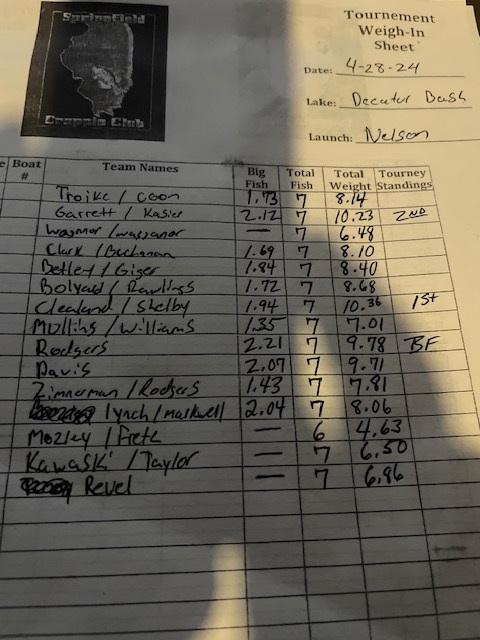 Springfield
Crappie Club
Tournement
Weigh-In
Sheet
Date: 4-28-24
Lake: Decatur Bash
Launch: Nelson
Boat # Team Names Big Fish Total Fish Total Weight Tourney Standings
Troike / Coon 1.73 7 8.14
Garrett / Kasier 2.12 7 10.23 2ND
Wagner / Waggoner — 7 6.48
Clark / Buchanan 1.69 7 8.10
Betley / Giger 1.84 7 8.40
Bolyard / Rawlings 1.72 7 8.68
Clealand / Shelby 1.94 7 10.36 1st
Mullins / Williams 1.35 7 7.01
Rodgers 2.21 7 9.78 BF
Davis 2.07 7 9.71
Zimmerman / Rodgers 1.43 7 7.81
Lynch / Markwell 2.04 7 8.06
Mozley / Freth — 6 4.63
Kawaski / Taylor — 7 6.50
Revel — 7 6.96